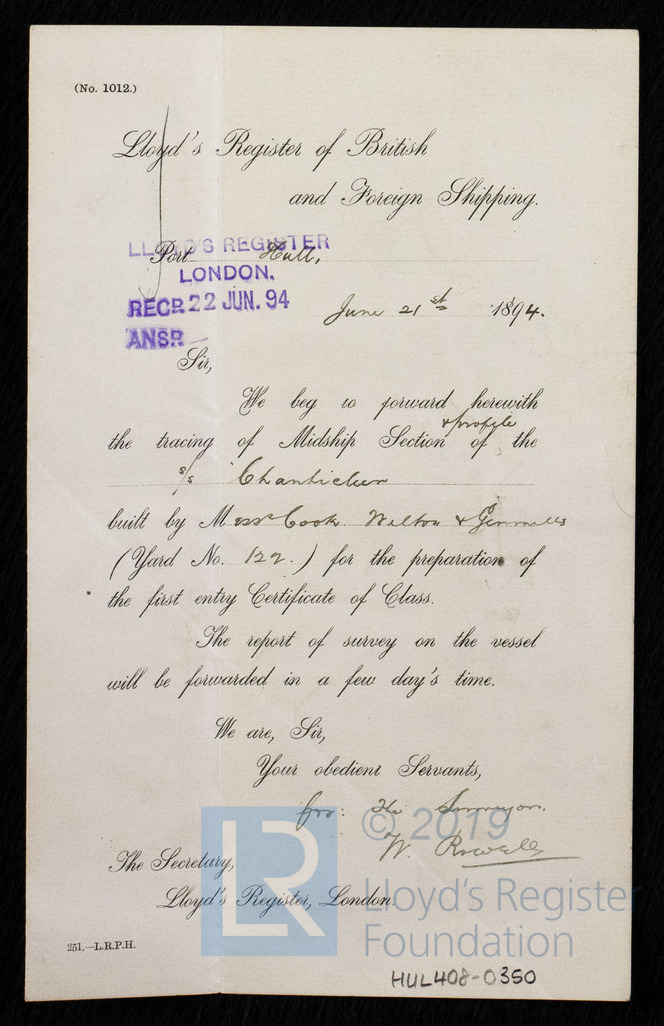 (No. 1012.)
Lloyd's Register of British
and Foreign Shipping.
LLOYD'S REGISTER
Port Hull,
LONDON.
RECD. 22 JUN. 94
June 21st 1894.
ANSR
Sir,
We beg to forward herewith
& profile
the tracing of Midship Section of the
s/s Chanticleer
built by Messrs Cook Welton & Gemmell
(Yard No. 122.) for the preparation of
the first entry Certificate of Class.
The report of survey on the vessel
will be forwarded in a few day's time.
We are, Sir,
Your obedient Servants,
for: The Surveyors.
© 2019
W. Rowell
The Secretary,
LR
Lloyd's Register, London.
Lloyd's Register
Foundation
251.—L.R.P.H.
HUL408-0350